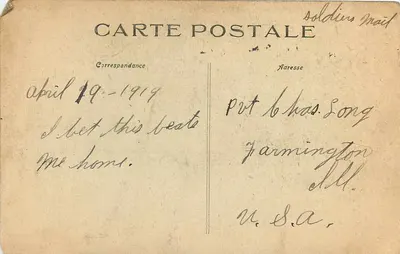 Soldiers Mail
CARTE POSTALE
Correspondance
Adresse
April 19-1919
I bet this beats
me home.
Pvt Chas. Long
Farmington
Ill.
U. S. A.